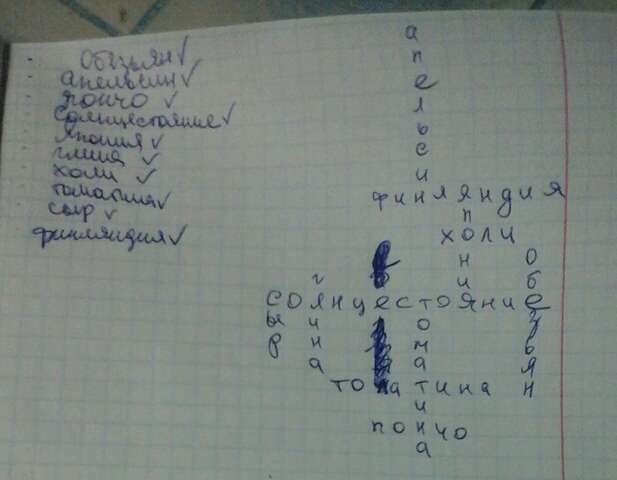 Обезьян ✓
апельсин ✓
пончо ✓
Солнцестояние ✓
Япония ✓
глина ✓
холи ✓
томатина ✓
сыр ✓
финляндия ✓
апельсин
финляндия
япония
холи
обезьян
глина
солнцестояние
сыр
томатина
томатина
пончо